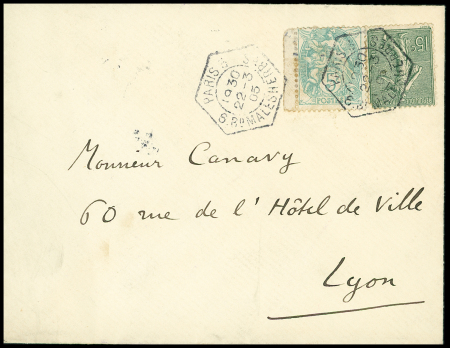 PARIS 6
6. Bd MALESHERBES
19 30
22-3
05
15c
POSTES
Monsieur Canavy
60 rue de l'Hôtel de Ville
Lyon